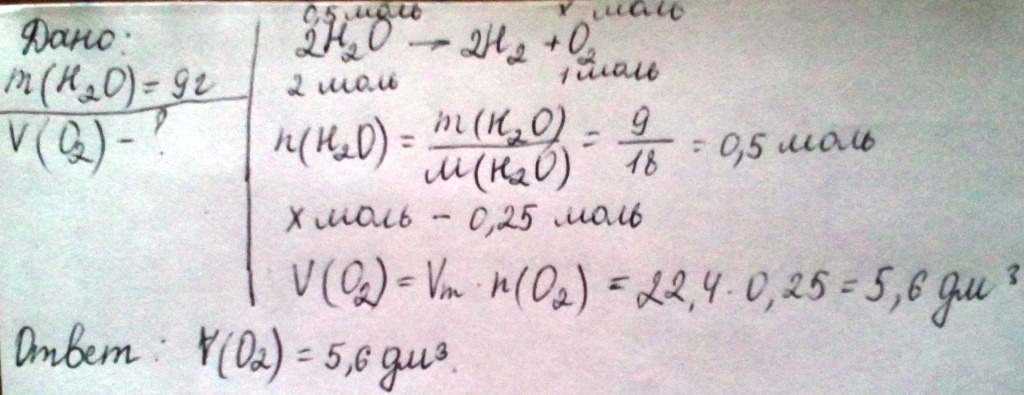 Дано:
m(H₂O) = 9г
V(O₂) - ?
0,5 моль x моль
2H₂O → 2H₂ + O₂
2 моль 1 моль
n(H₂O) = m(H₂O) / M(H₂O) = 9 / 18 = 0,5 моль
x моль - 0,25 моль
V(O₂) = Vm · n(O₂) = 22,4 · 0,25 = 5,6 дм³
Ответ: V(O₂) = 5,6 дм³.